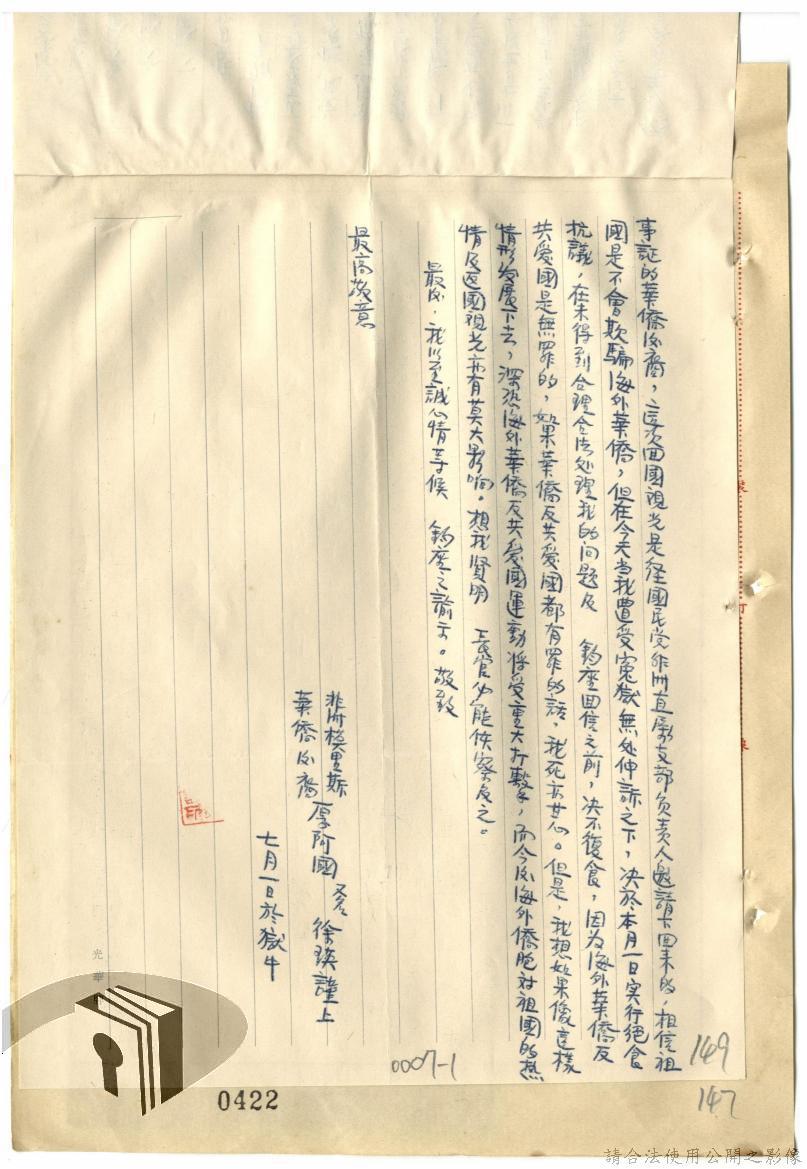 事証的華僑后裔，這次回國視光是経國民党非洲直屬支部负责人邀請下回来的，相信祖
國是不會欺騙海外華僑，但在今天当我遭受寃獄無处伸訴之下，决於本月一日实行絕食
抗議，在未得到合理合法处理我的问题及 鈞座回信之前，决不復食，因为海外華僑反
共爱國是無罪的，如果華僑反共爱國都有罪的話，我死亦甘心。但是，我想如果像這樣
情形发展下去，深恐海外華僑反共爱國運動将受重大打擊，而今后海外僑胞对祖國的热
情及返國視光亦有莫大影响。想我賢明 長官必能俠察及之。
最后，我以至誠心情等候 鈞座之諭示。敬致
最高敬意
非洲模里斯
華僑后裔 厚阿國 又名 徐瑛謹上
七月一日於獄中
光華
149
147
0007-1
0422
請合法使用公開之影像